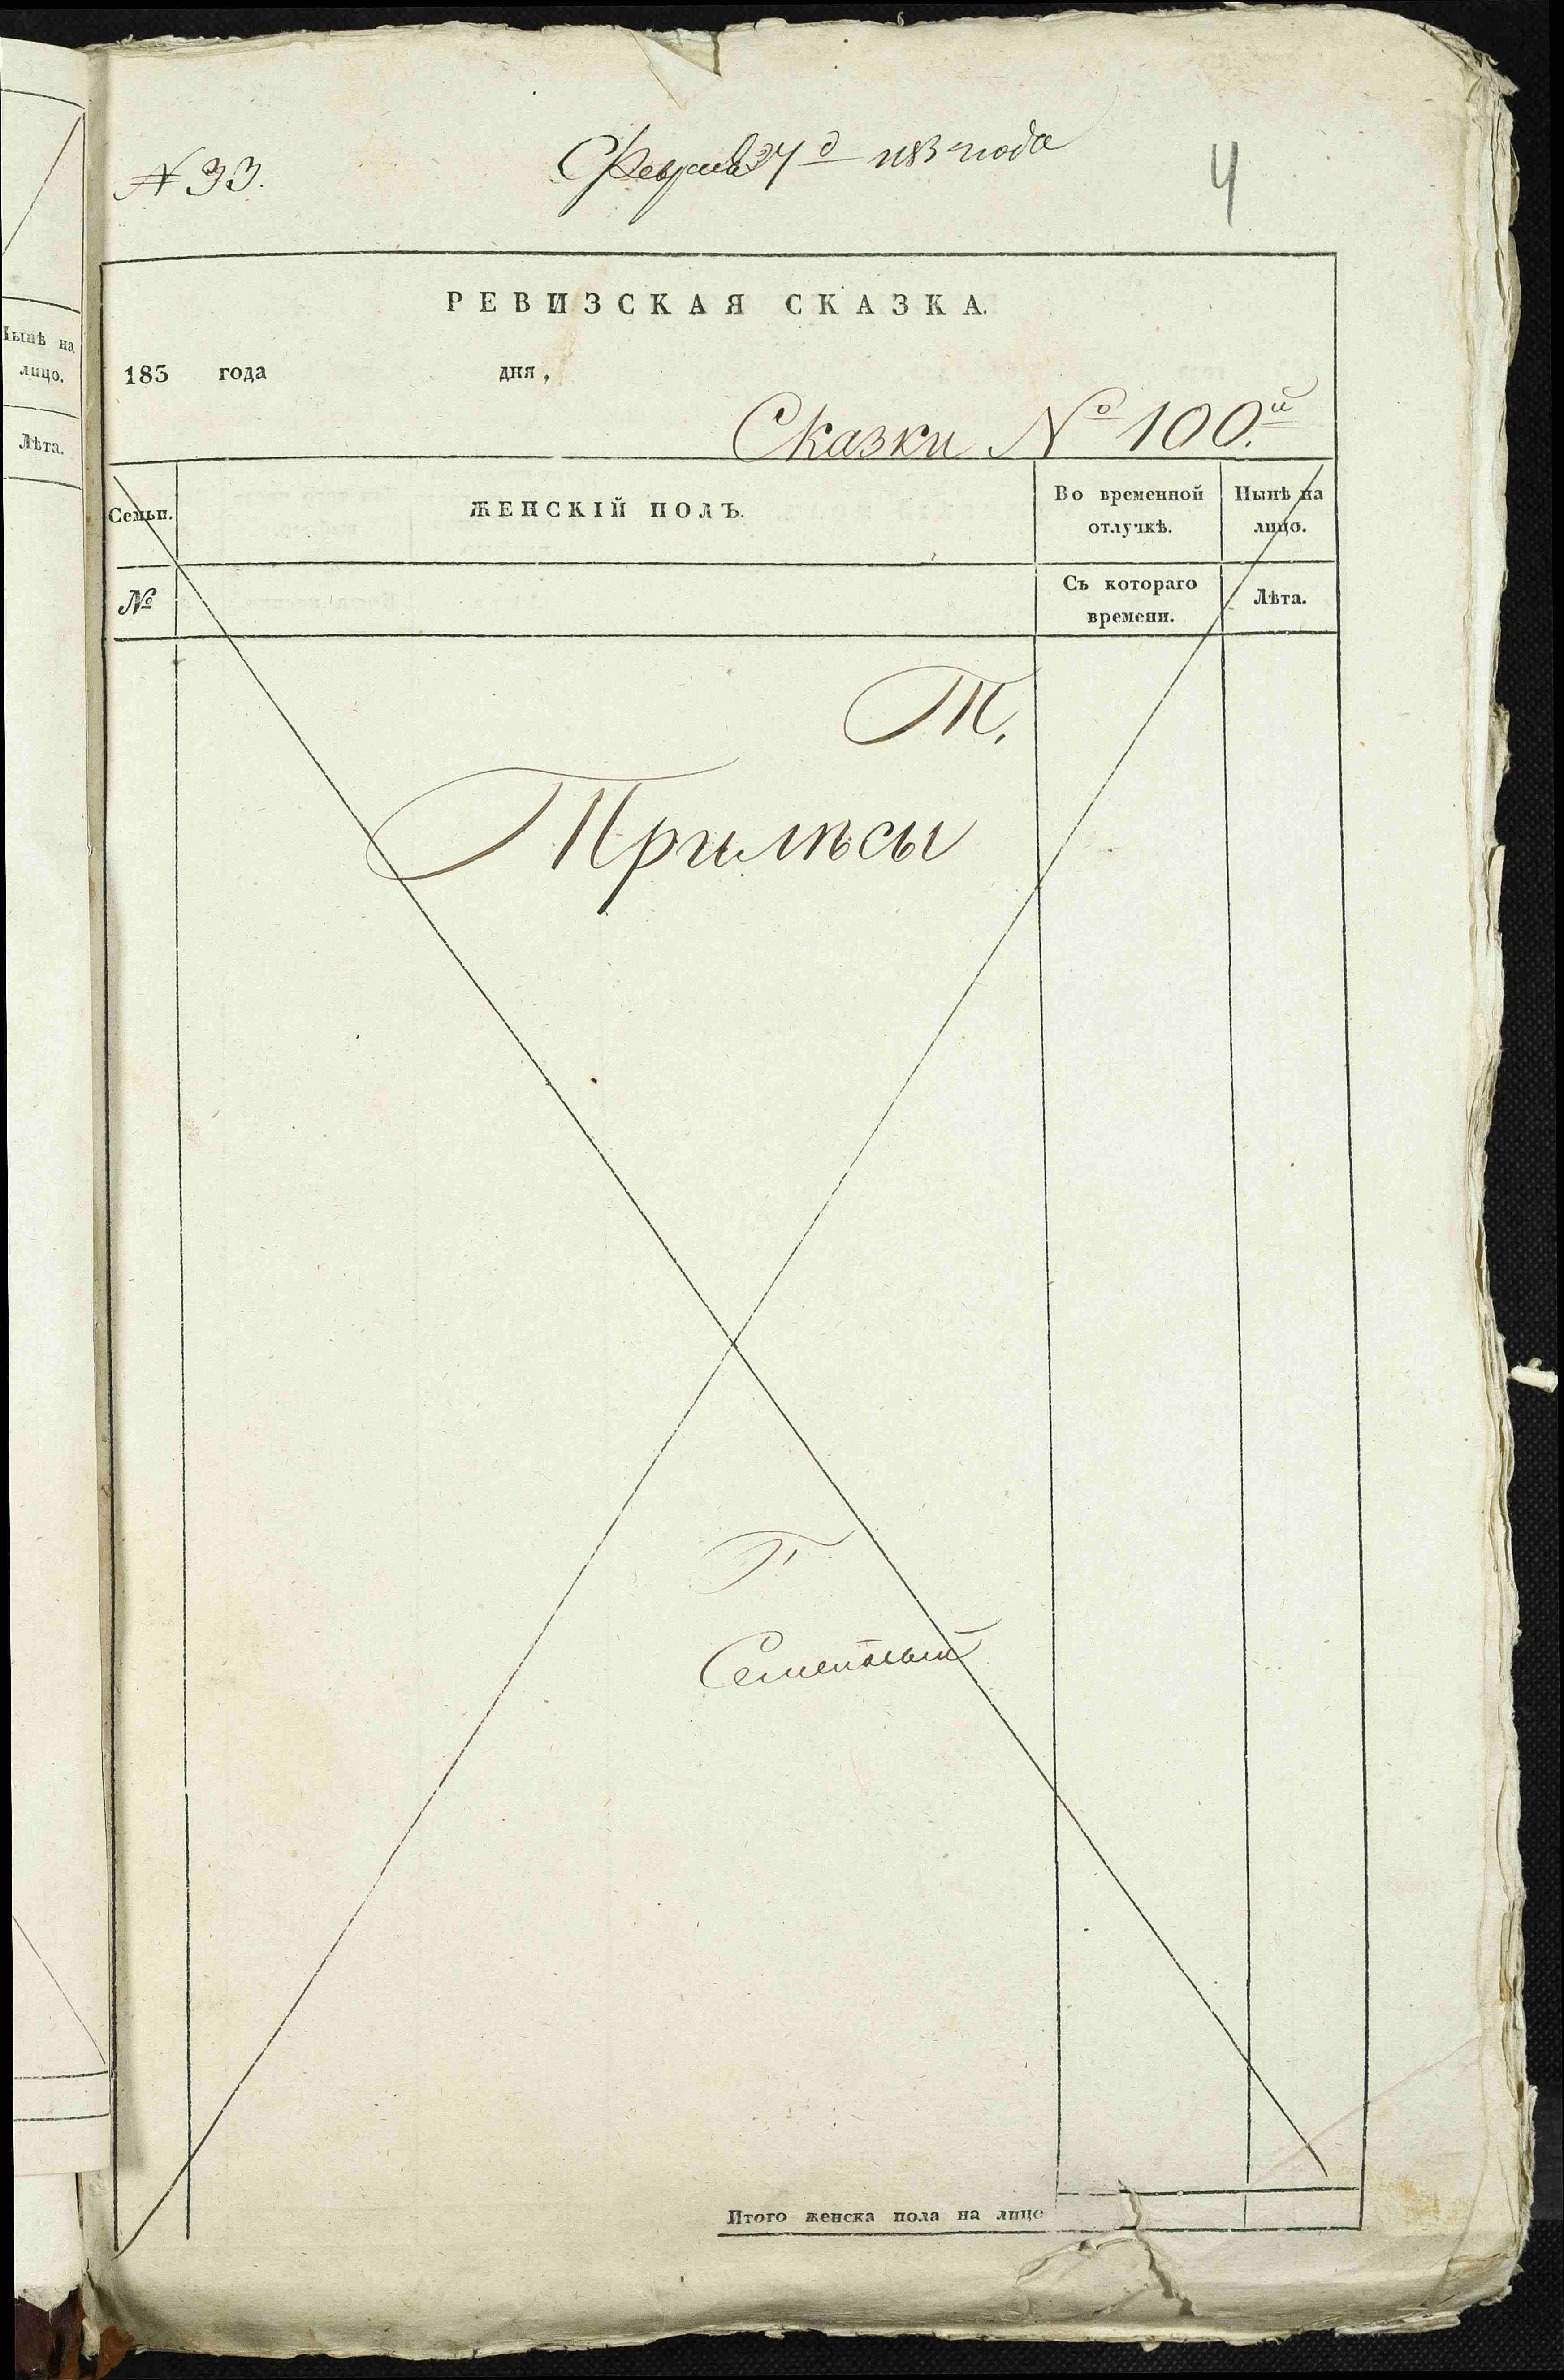 № 33.
Февраля 27 д 1183 года
4
РЕВИЗСКАЯ СКАЗКА.
185 года дня,
Сказки № 100.й
Семьи.
ЖЕНСКІЙ ПОЛЪ.
Во временной
отлучкѣ.
Нынѣ на
лицо.
№
Съ котораго
времени.
Лѣта.
М.
Прилѣсы
Г
Итого женска пола на лицо
Нынѣ на
лицо.
Лѣта.